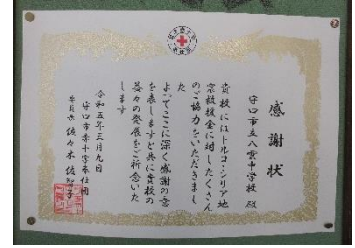 感謝状
守口市立八雲中学校 殿
貴校にはトルコ・シリア地
震救援金に対したくさん
のご協力をいただきまし
た
よってここに深く感謝の意
を表しますと共に貴校の
益々の発展をご祈念いた
します
令和五年三月九日
守口市赤十字奉仕団
委員長 佐々木 佐智子